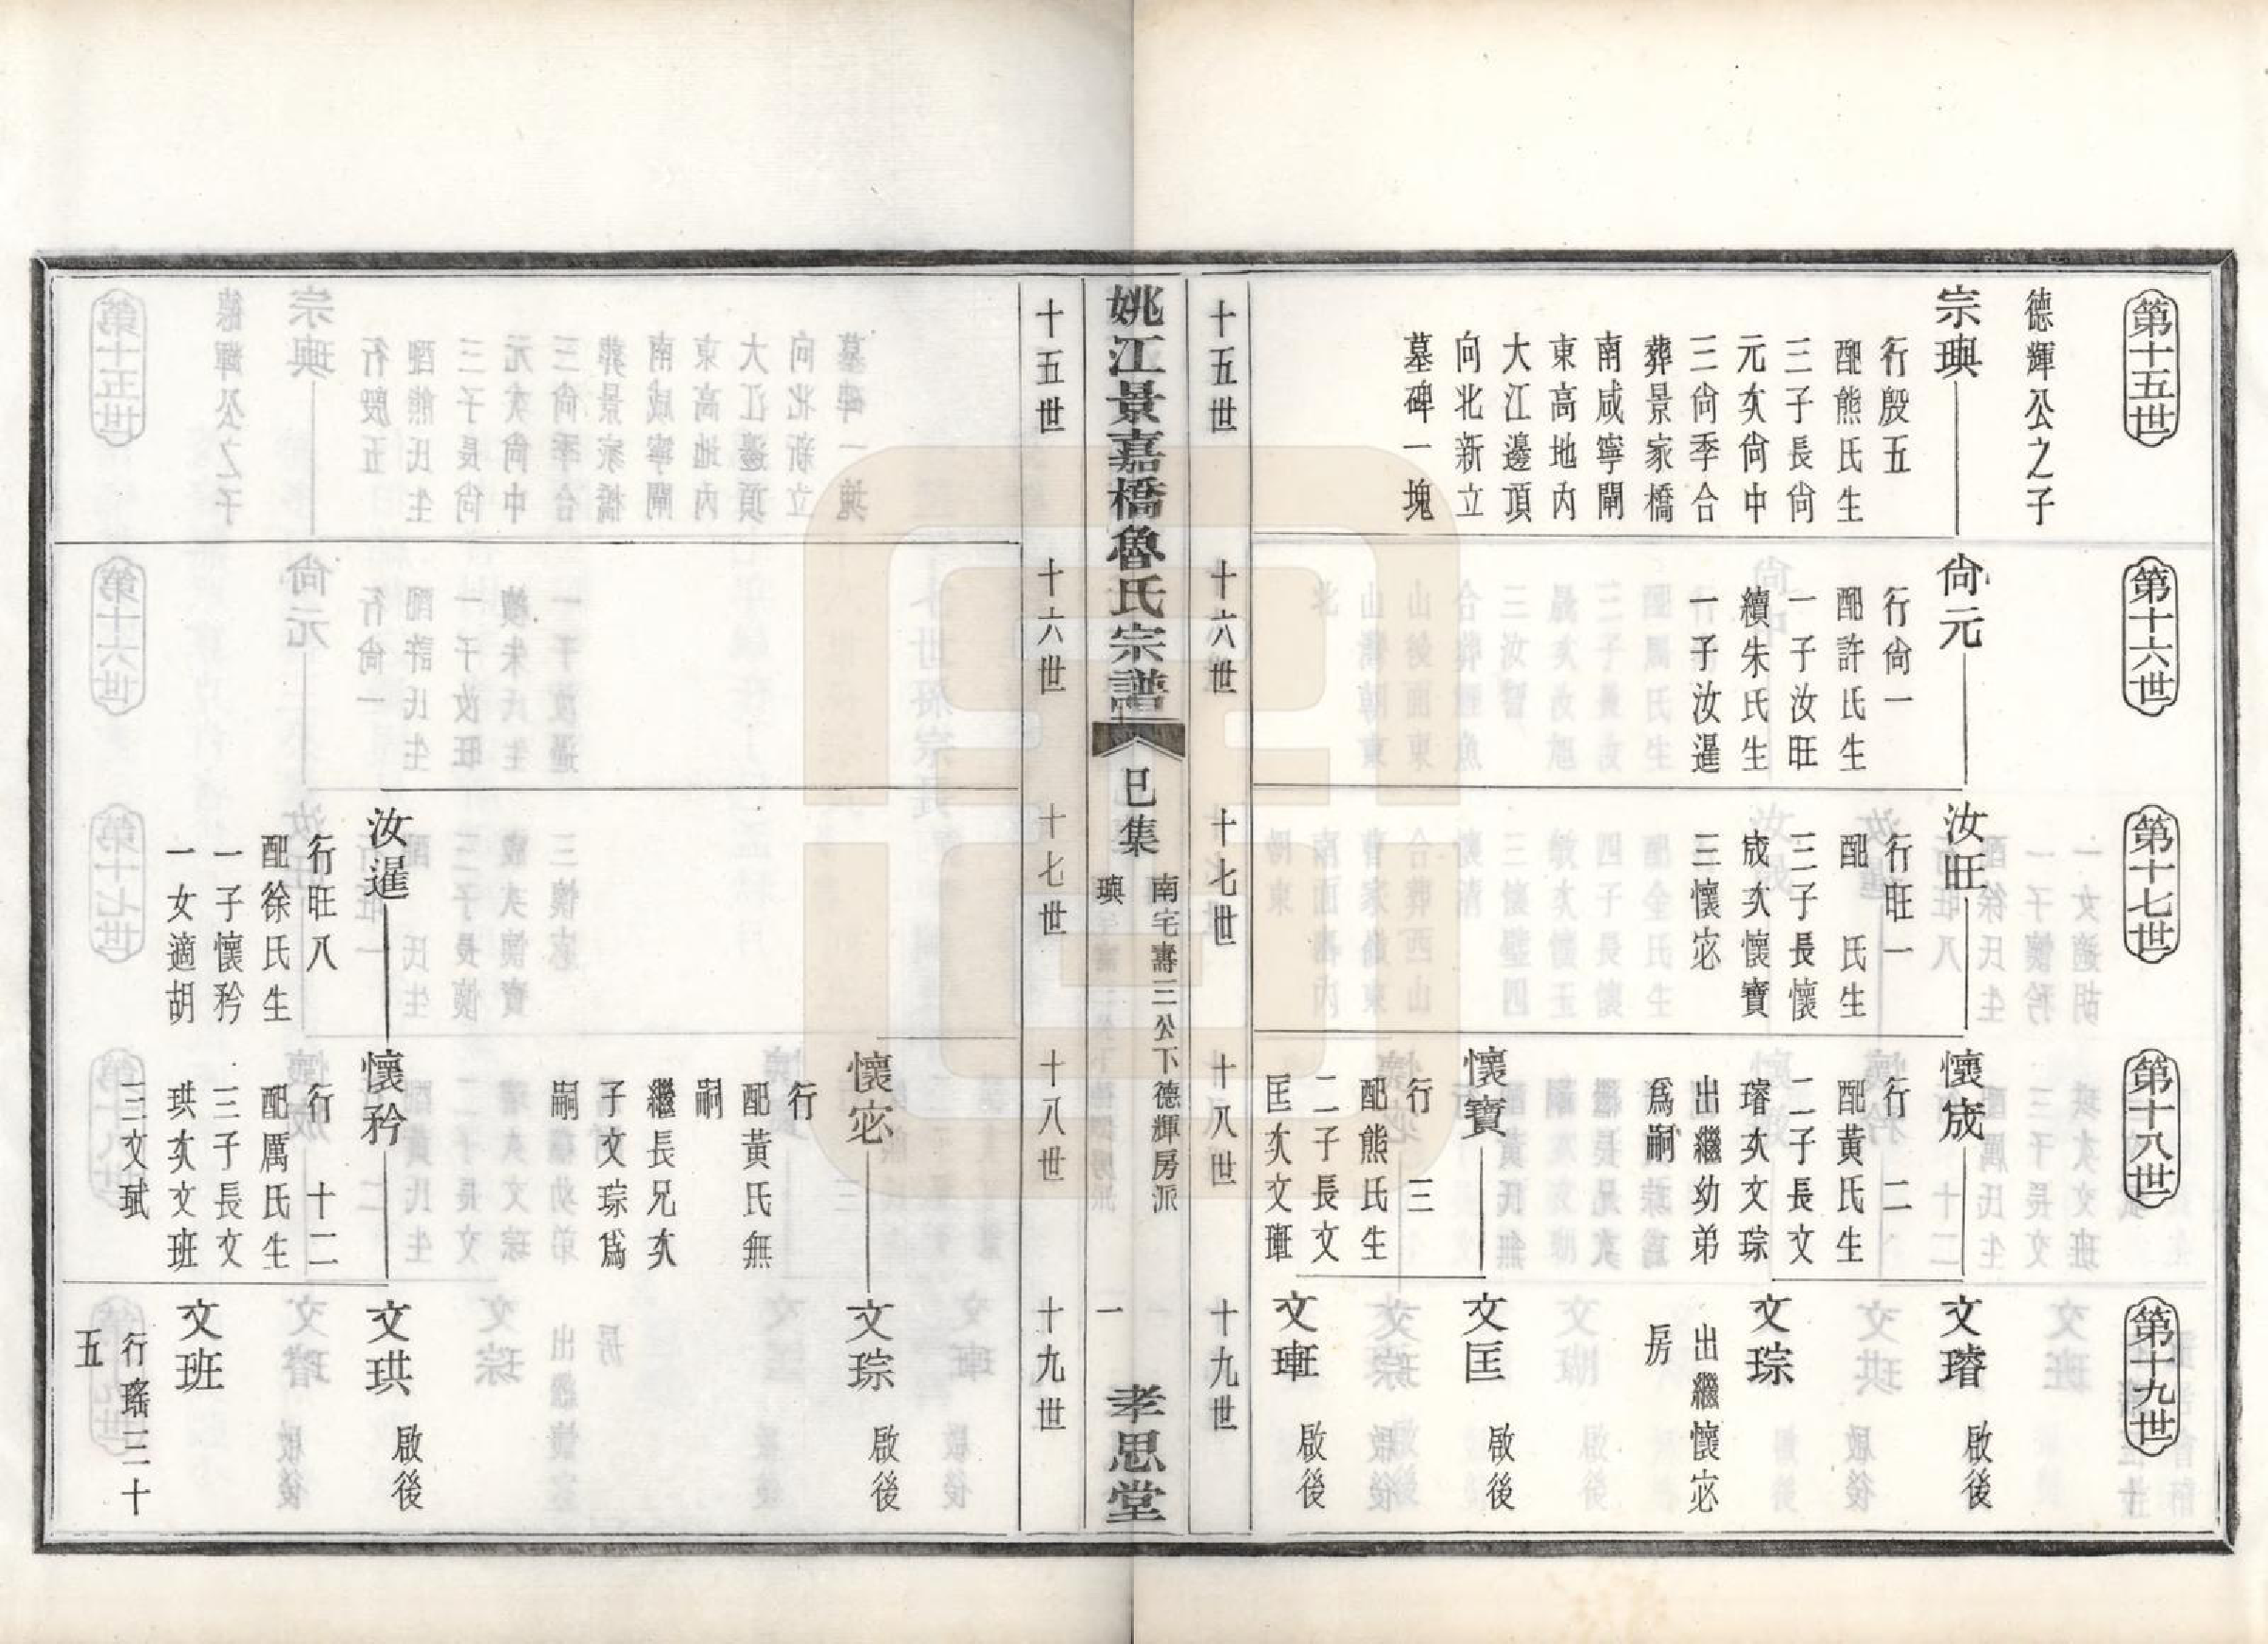 第十五世
德輝公之子
宗璵
行殷五
配熊氏生
三子長尙
元次尙中
三尙季合
葬景家橋
南咸寧閘
東高地內
大江邊頂
向北新立
墓碑一塊
第十六世
尙元
行尙一
配許氏生
一子汝旺
續朱氏生
一子汝暹
第十七世
汝旺
行旺一
配　氏生
三子長懷
宬次懷寶
三懷宓
第十八世
懷宬
行　二
配黃氏生
二子長文
璿次文琮
出繼幼弟
爲嗣
懷寶
行　三
配熊氏生
二子長文
匡次文琟
第十九世
文璿
啟後
文琮
出繼懷宓
房
文匡
啟後
文琟
啟後
十五世
十六世
十七世
十八世
十九世
姚江景嘉橋魯氏宗譜
巳集
南宅壽三公下德輝房派
璵
一
孝思堂
十五世
十六世
十七世
十八世
十九世
汝暹
行旺八
配徐氏生
一子懷矜
一女適胡
懷宓
行
配黃氏無
嗣
繼長兄次
子文琮爲
嗣
懷矜
行　十二
配厲氏生
三子長文
珙次文班
三文珷
文琮
啟後
文珙
啟後
文班
行瑤三十
五